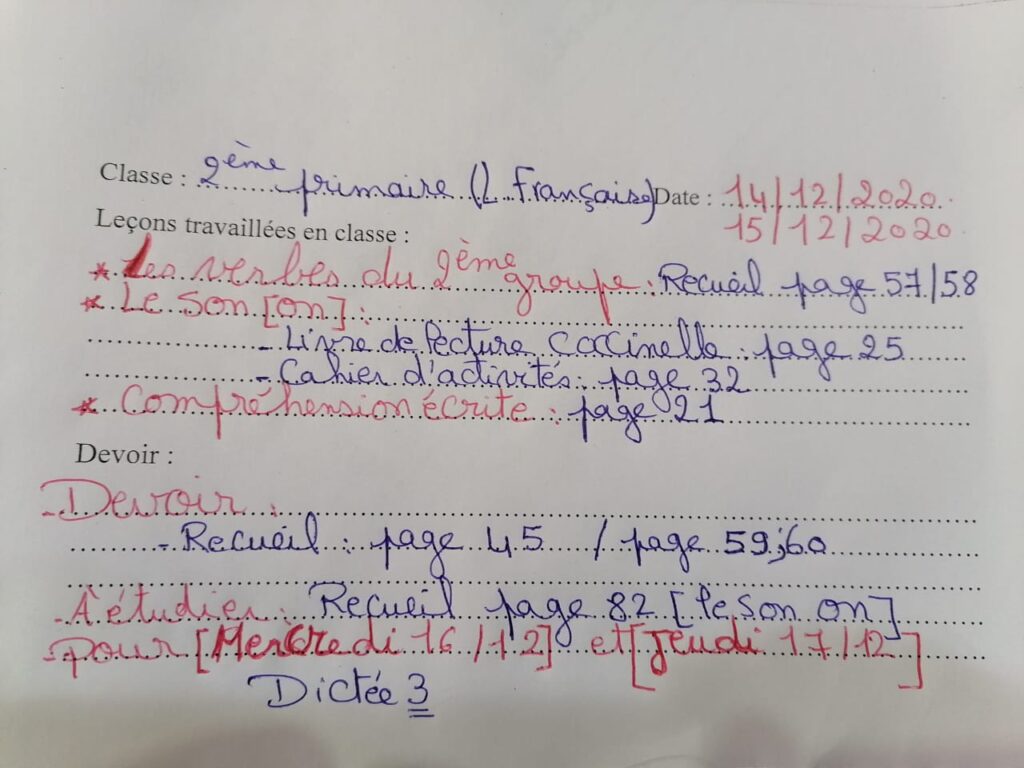 Classe : 2ème primaire (L. Française) Date : 14/12/2020
15/12/2020
Leçons travaillées en classe :
* Les verbes du 2ème groupe : Recueil page 57/58
* Le son [on] :
- Livre de lecture Coccinelle : page 25
- Cahier d'activités : page 32
* Compréhension écrite : page 21
Devoir :
- Devoir :
- Recueil : page 45 / page 59;60
- A étudier : Recueil page 82 [le son on]
- pour [Mercredi 16/12] et [Jeudi 17/12]
Dictée 3